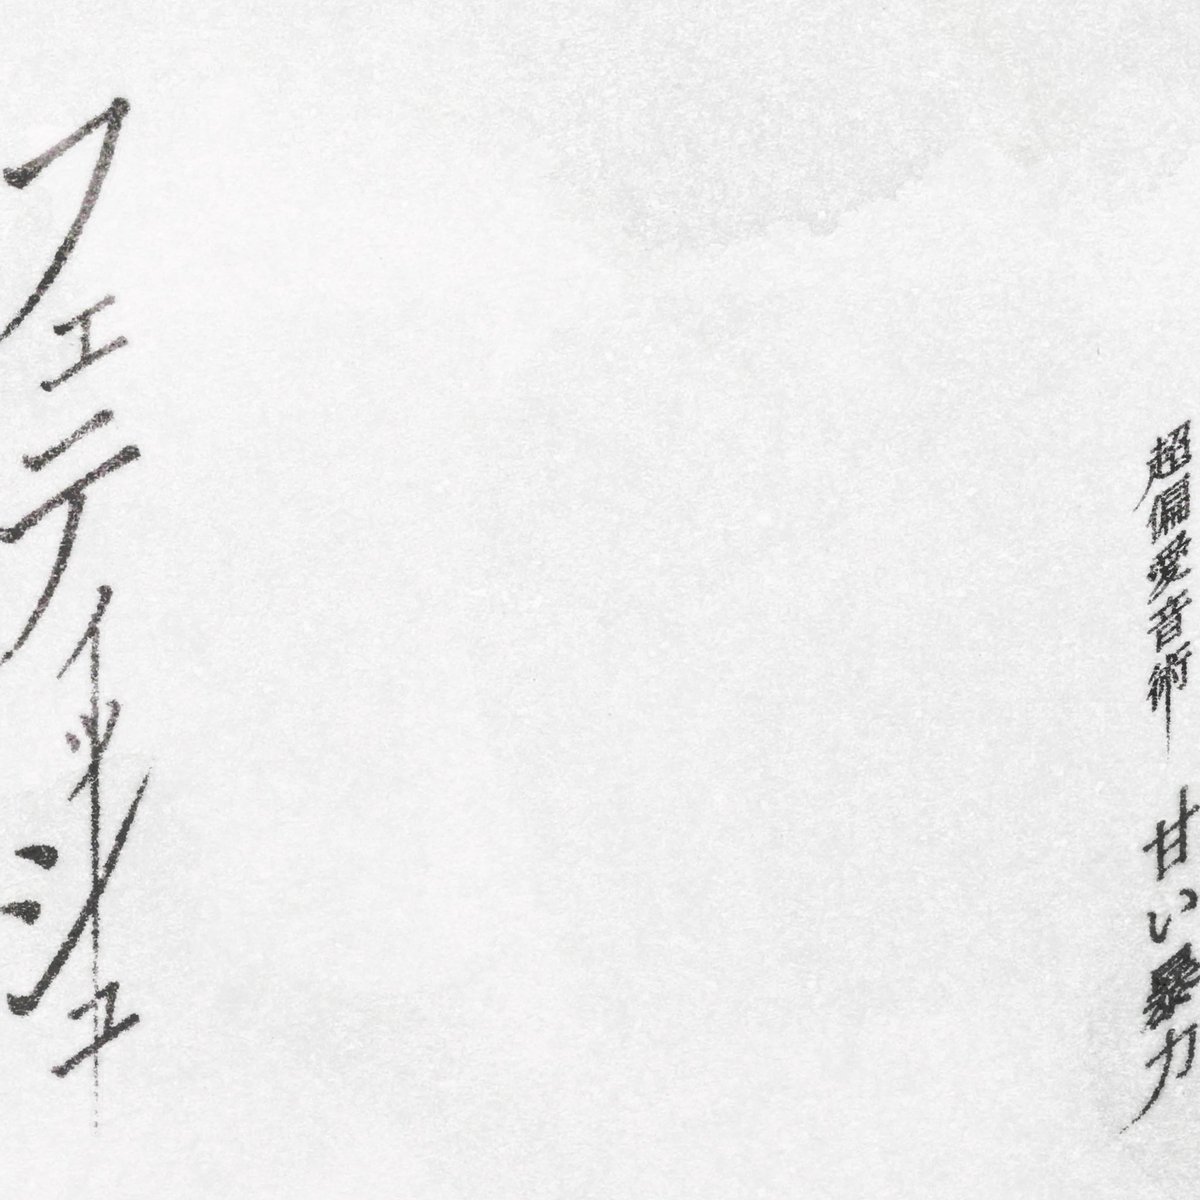 超偏愛音術　甘い暴力
フェティッシュ